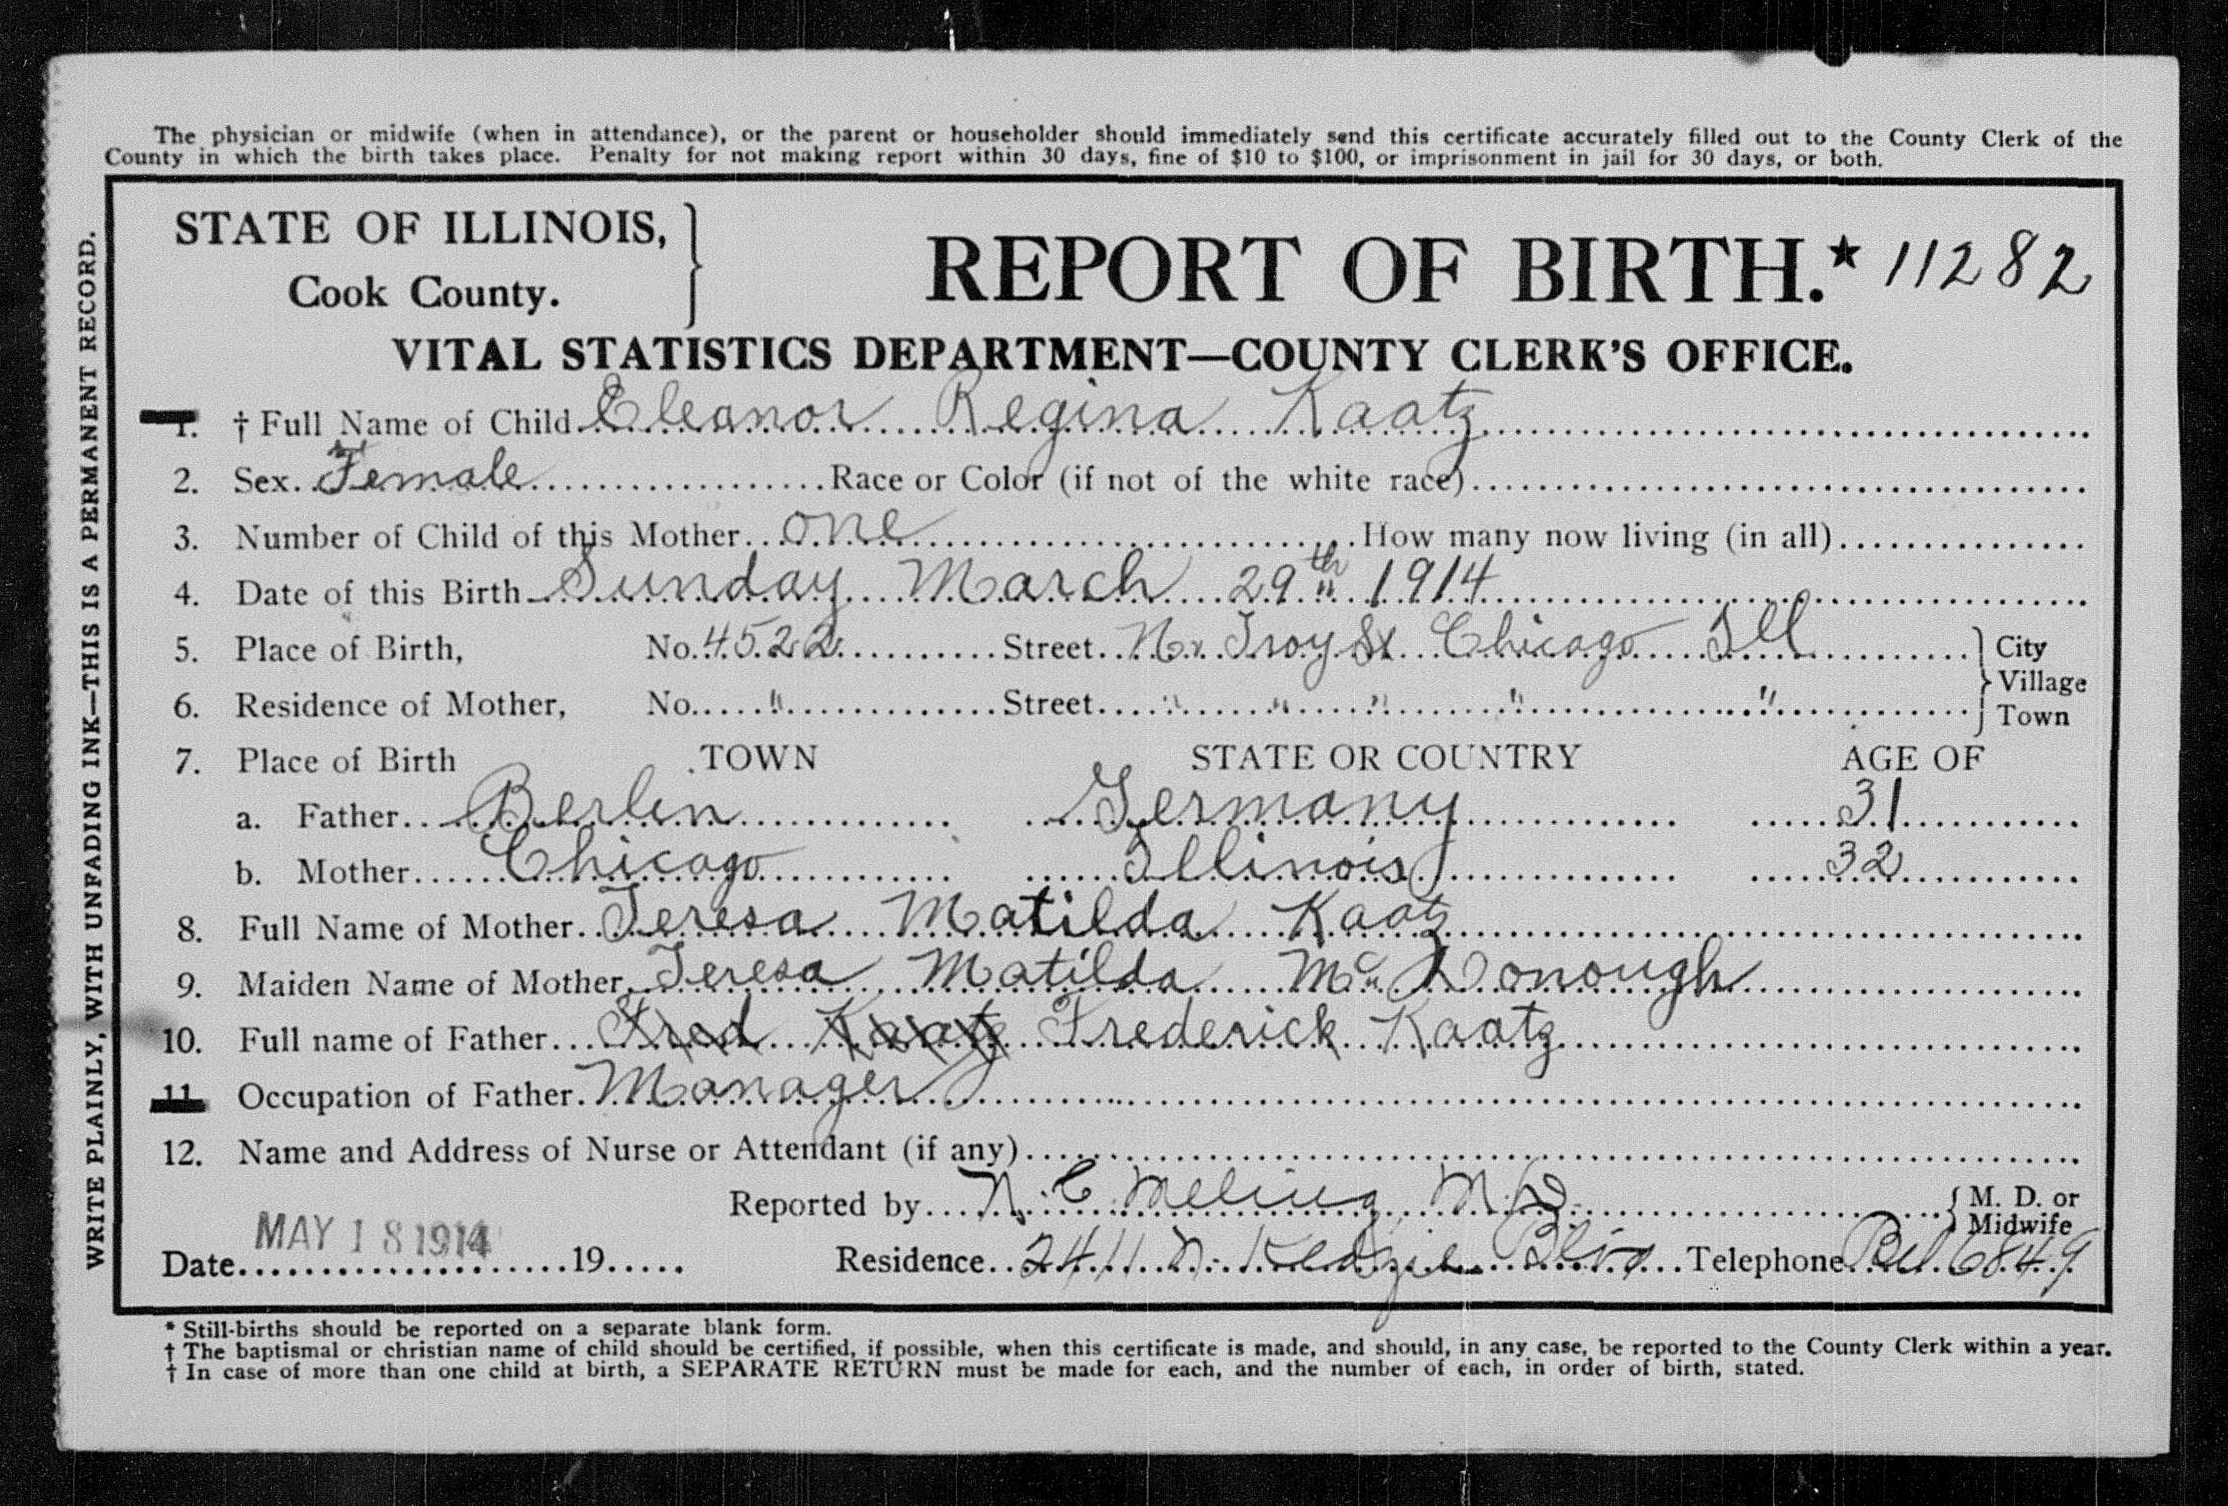 The physician or midwife (when in attendance), or the parent or householder should immediately send this certificate accurately filled out to the County Clerk of the
County in which the birth takes place. Penalty for not making report within 30 days, fine of $10 to $100, or imprisonment in jail for 30 days, or both.
WRITE PLAINLY, WITH UNFADING INK—THIS IS A PERMANENT RECORD.
STATE OF ILLINOIS,
Cook County.
REPORT OF BIRTH.* 11282
VITAL STATISTICS DEPARTMENT—COUNTY CLERK'S OFFICE.
1. † Full Name of Child Eleanor Regina Kaatz
2. Sex Female Race or Color (if not of the white race)
3. Number of Child of this Mother one How many now living (in all)
4. Date of this Birth Sunday March 29th 1914
5. Place of Birth, No. 4522 Street N. Troy St Chicago Ill City
Village
6. Residence of Mother, No. " Street " " " " " Town
7. Place of Birth TOWN STATE OR COUNTRY AGE OF
a. Father Berlin Germany 31
b. Mother Chicago Illinois 32
8. Full Name of Mother Teresa Matilda Kaatz
9. Maiden Name of Mother Teresa Matilda Mc Donough
10. Full name of Father Fred Kaatz Frederick Kaatz
11. Occupation of Father Manager
12. Name and Address of Nurse or Attendant (if any)
Reported by N. C. Meling M.D. M. D. or
Midwife
MAY 18 1914
Date 19 Residence 2411 N. Kedzie Blvd Telephone Bel 6849
* Still-births should be reported on a separate blank form.
† The baptismal or christian name of child should be certified, if possible, when this certificate is made, and should, in any case, be reported to the County Clerk within a year.
† In case of more than one child at birth, a SEPARATE RETURN must be made for each, and the number of each, in order of birth, stated.